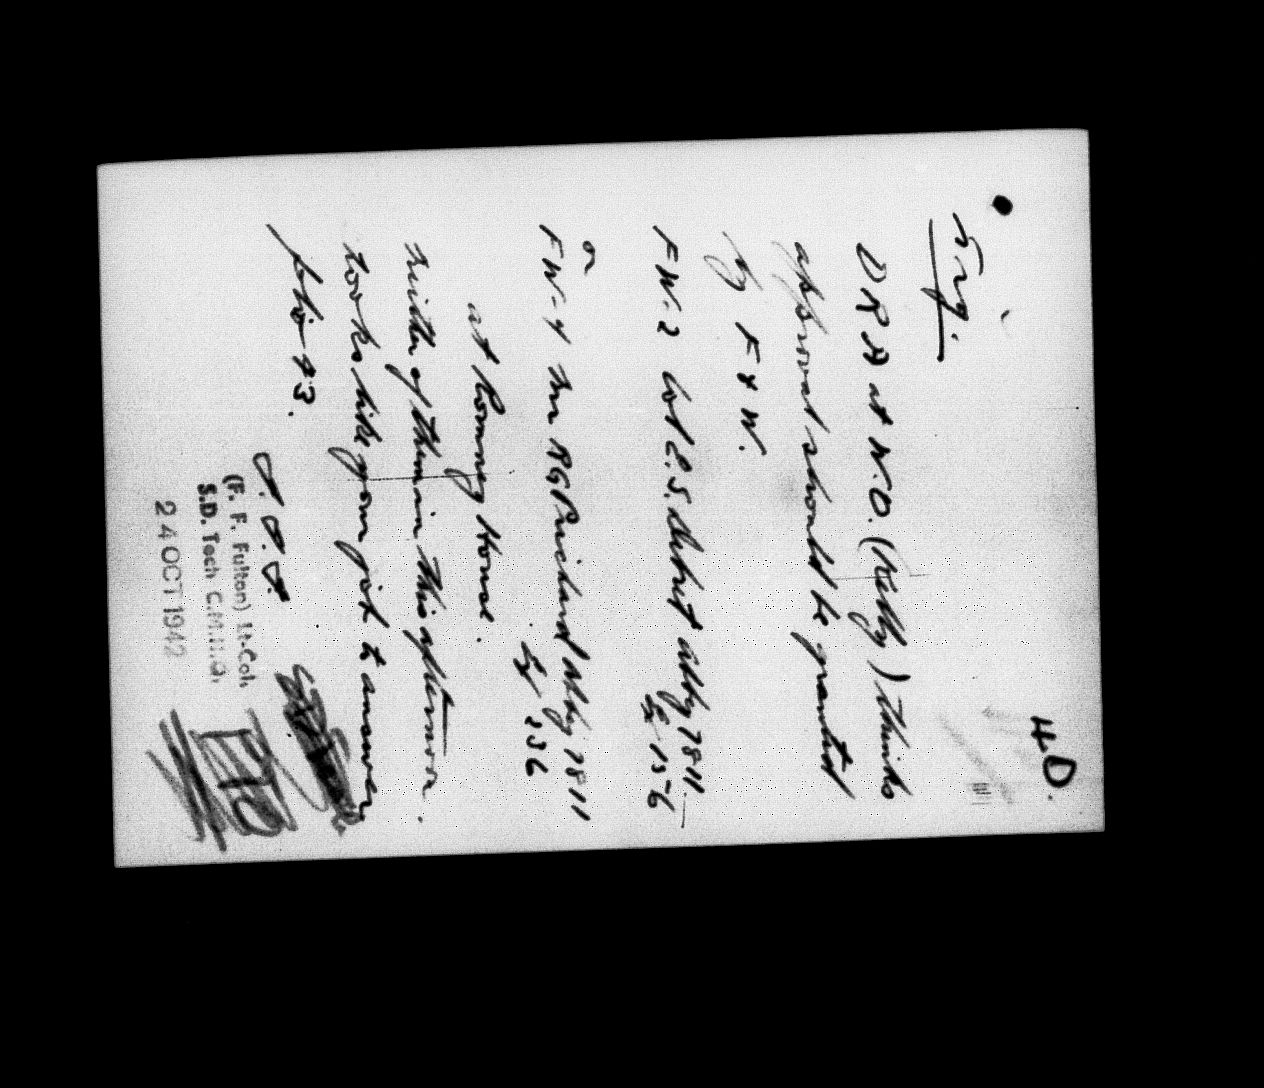 4D.
Trg.
D R A at W.O. (Kelly) thinks
approval should be granted
by F & W.
F W. 2 Lt Col C.S. Abby 7811.
Ex 156
or
F W. 4 Mr R G Prichard Abby 7811
at Romney House. Ex 336
Neither of them in this afternoon.
Looks like your job to answer
folio 43.
F. F. F.
(F. F. Fulton) Lt-Col.
S.D. Tech C.M.H.Q.
24 OCT 1942